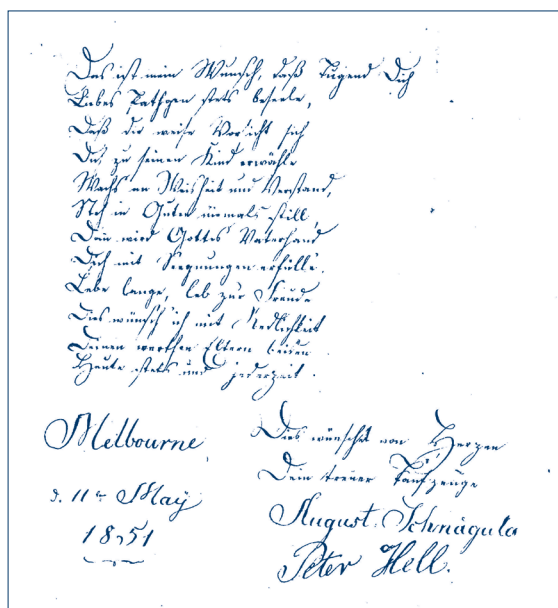 Das ist mein Wunsch, daß Tugend Dich
Liebes Pathgen stets beseele,
Daß die weise Vorsicht sich
Dich zu seinen Kind erwähle
Wachs an Weisheit und Verstand,
Steh in Guten niemals still,
Dein wird Gottes Vaterhand
Dich mit Seegnungen erfülle.
Lebe lange, leb zur Freude
Dies wünsch ich mit Redlichkeit
Deinen werthen Eltern beiden
Heute stets und jederzeit.
Melbourne,
d. 11te May
1851
Dies wünscht von Herzen
Dein treuer Taufzeuge
August Schnägula
Peter Hell.